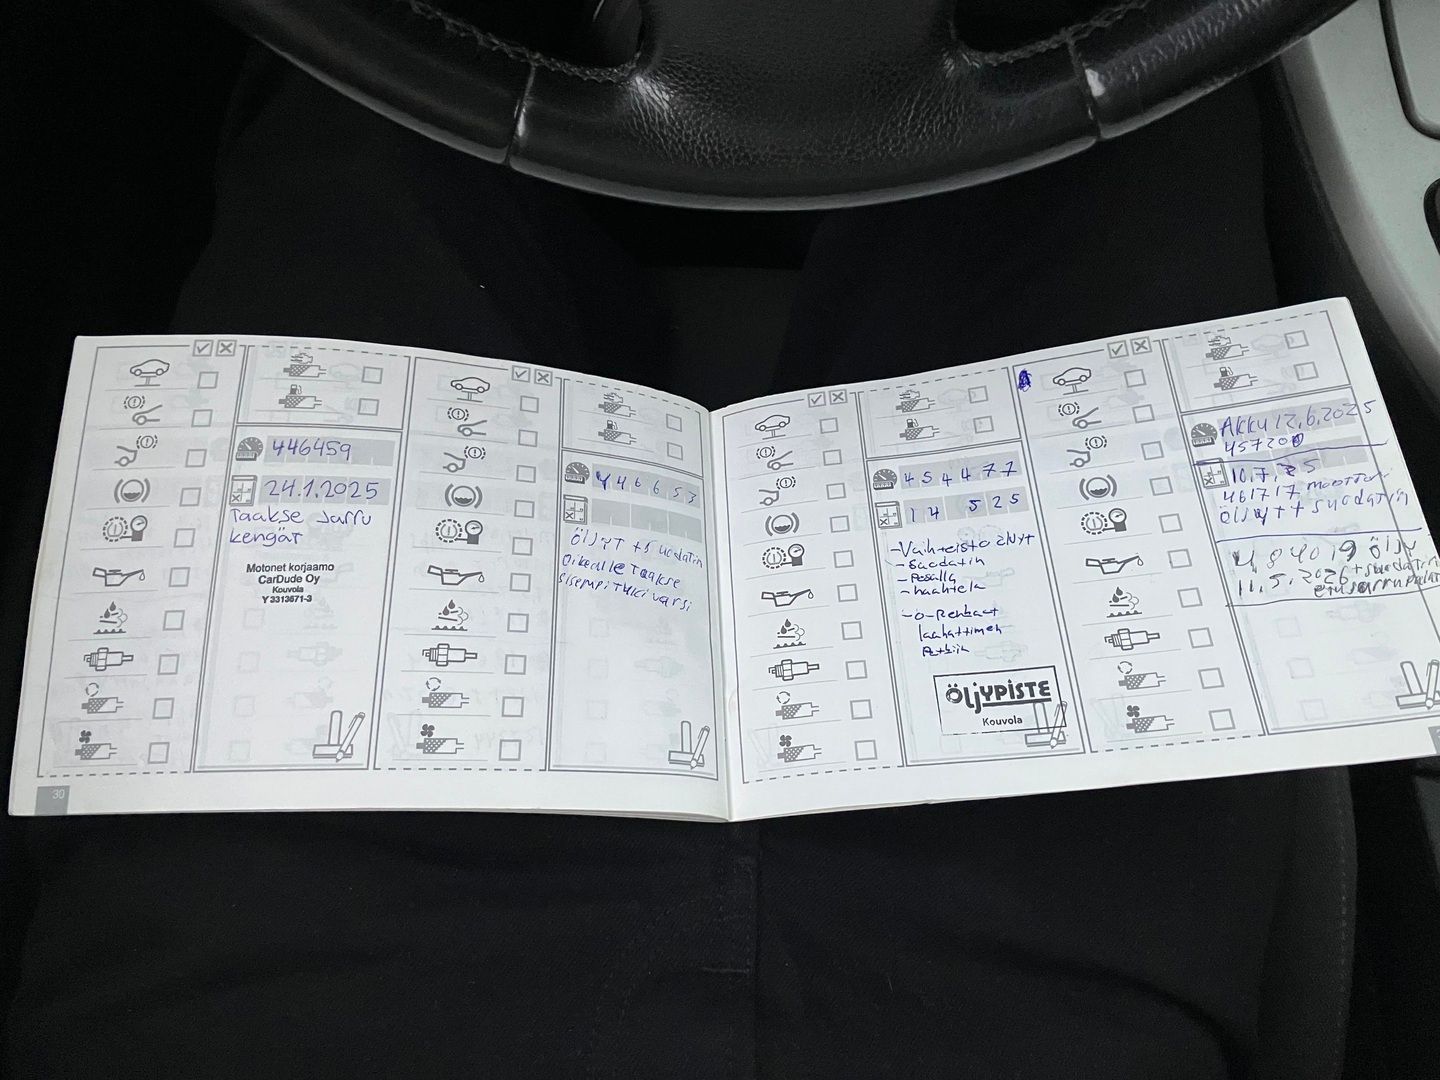 446459
24.1.2025
Taakse Jarru
kengät
Motonet korjaamo
CarDude Oy
Kouvola
Y3313671-3
30
446653
Öljyt + Suodatin
Oikealle Taakse
Sisempi tukivarsi
454477
14 5 25
-Vaihteisto öljyt
-Suodatin
-Pesulla
-haahtela
laahattimen
ÖLJYPISTE
Kouvola
Akku 12.6.2025
457200
10.7.25
461717 moottori
öljyt + suodatin
484019 öljy
11.5.2026 + suodatin
etujarrupalat